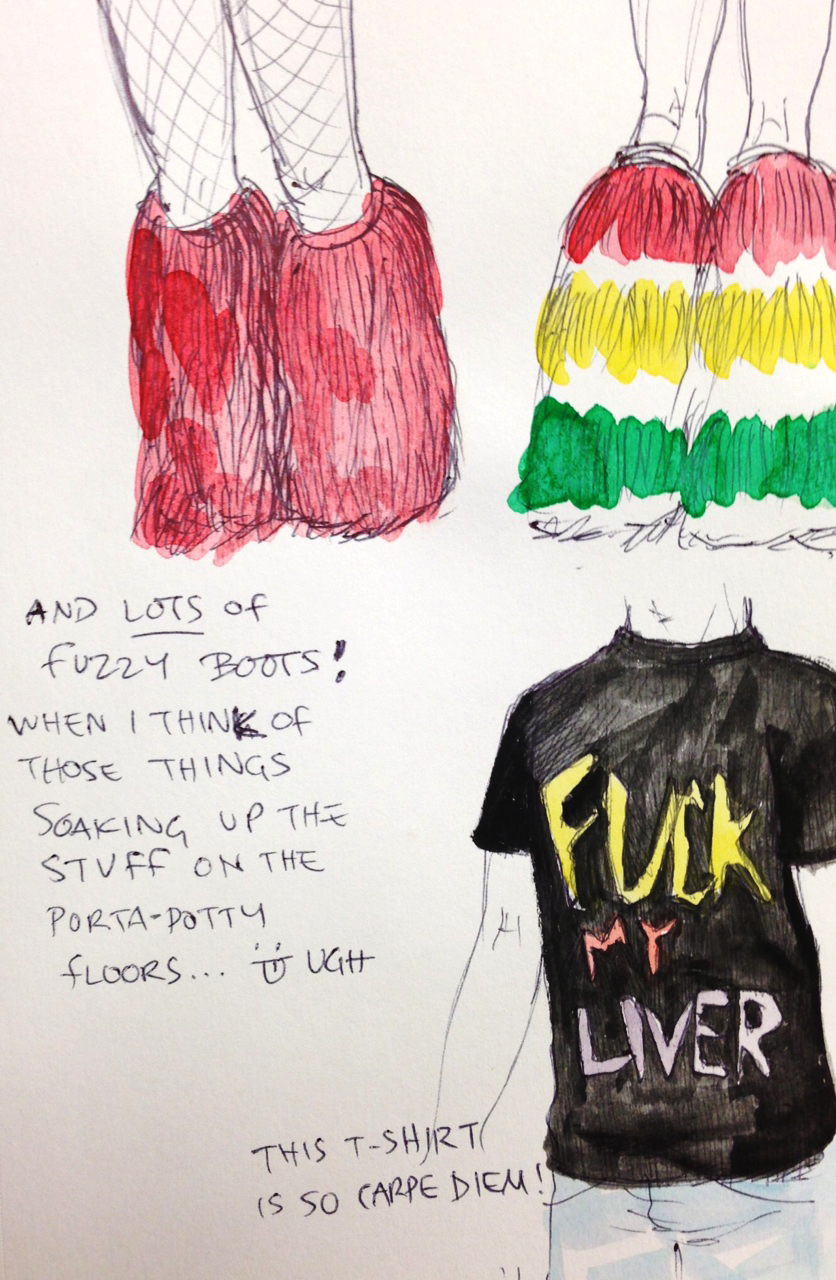 AND LOTS OF
FUZZY BOOTS!
WHEN I THINK OF
THOSE THINGS
SOAKING UP THE
STUFF ON THE
PORTA-POTTY
FLOORS... UGH
FUCK
MY
LIVER
THIS T-SHIRT
IS SO CARPE DIEM!